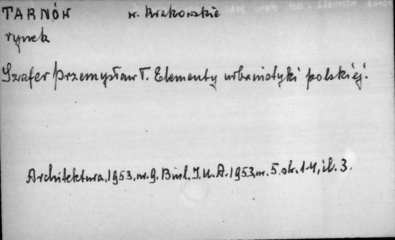 TARNÓW w. Krakowskie
rynek
Szafer Przemysław T. Elementy urbanistyki polskiej.
Architektura.1953.nr.9. Biul. I.U.A.1953.nr.5.ok.1-4, il. 3.